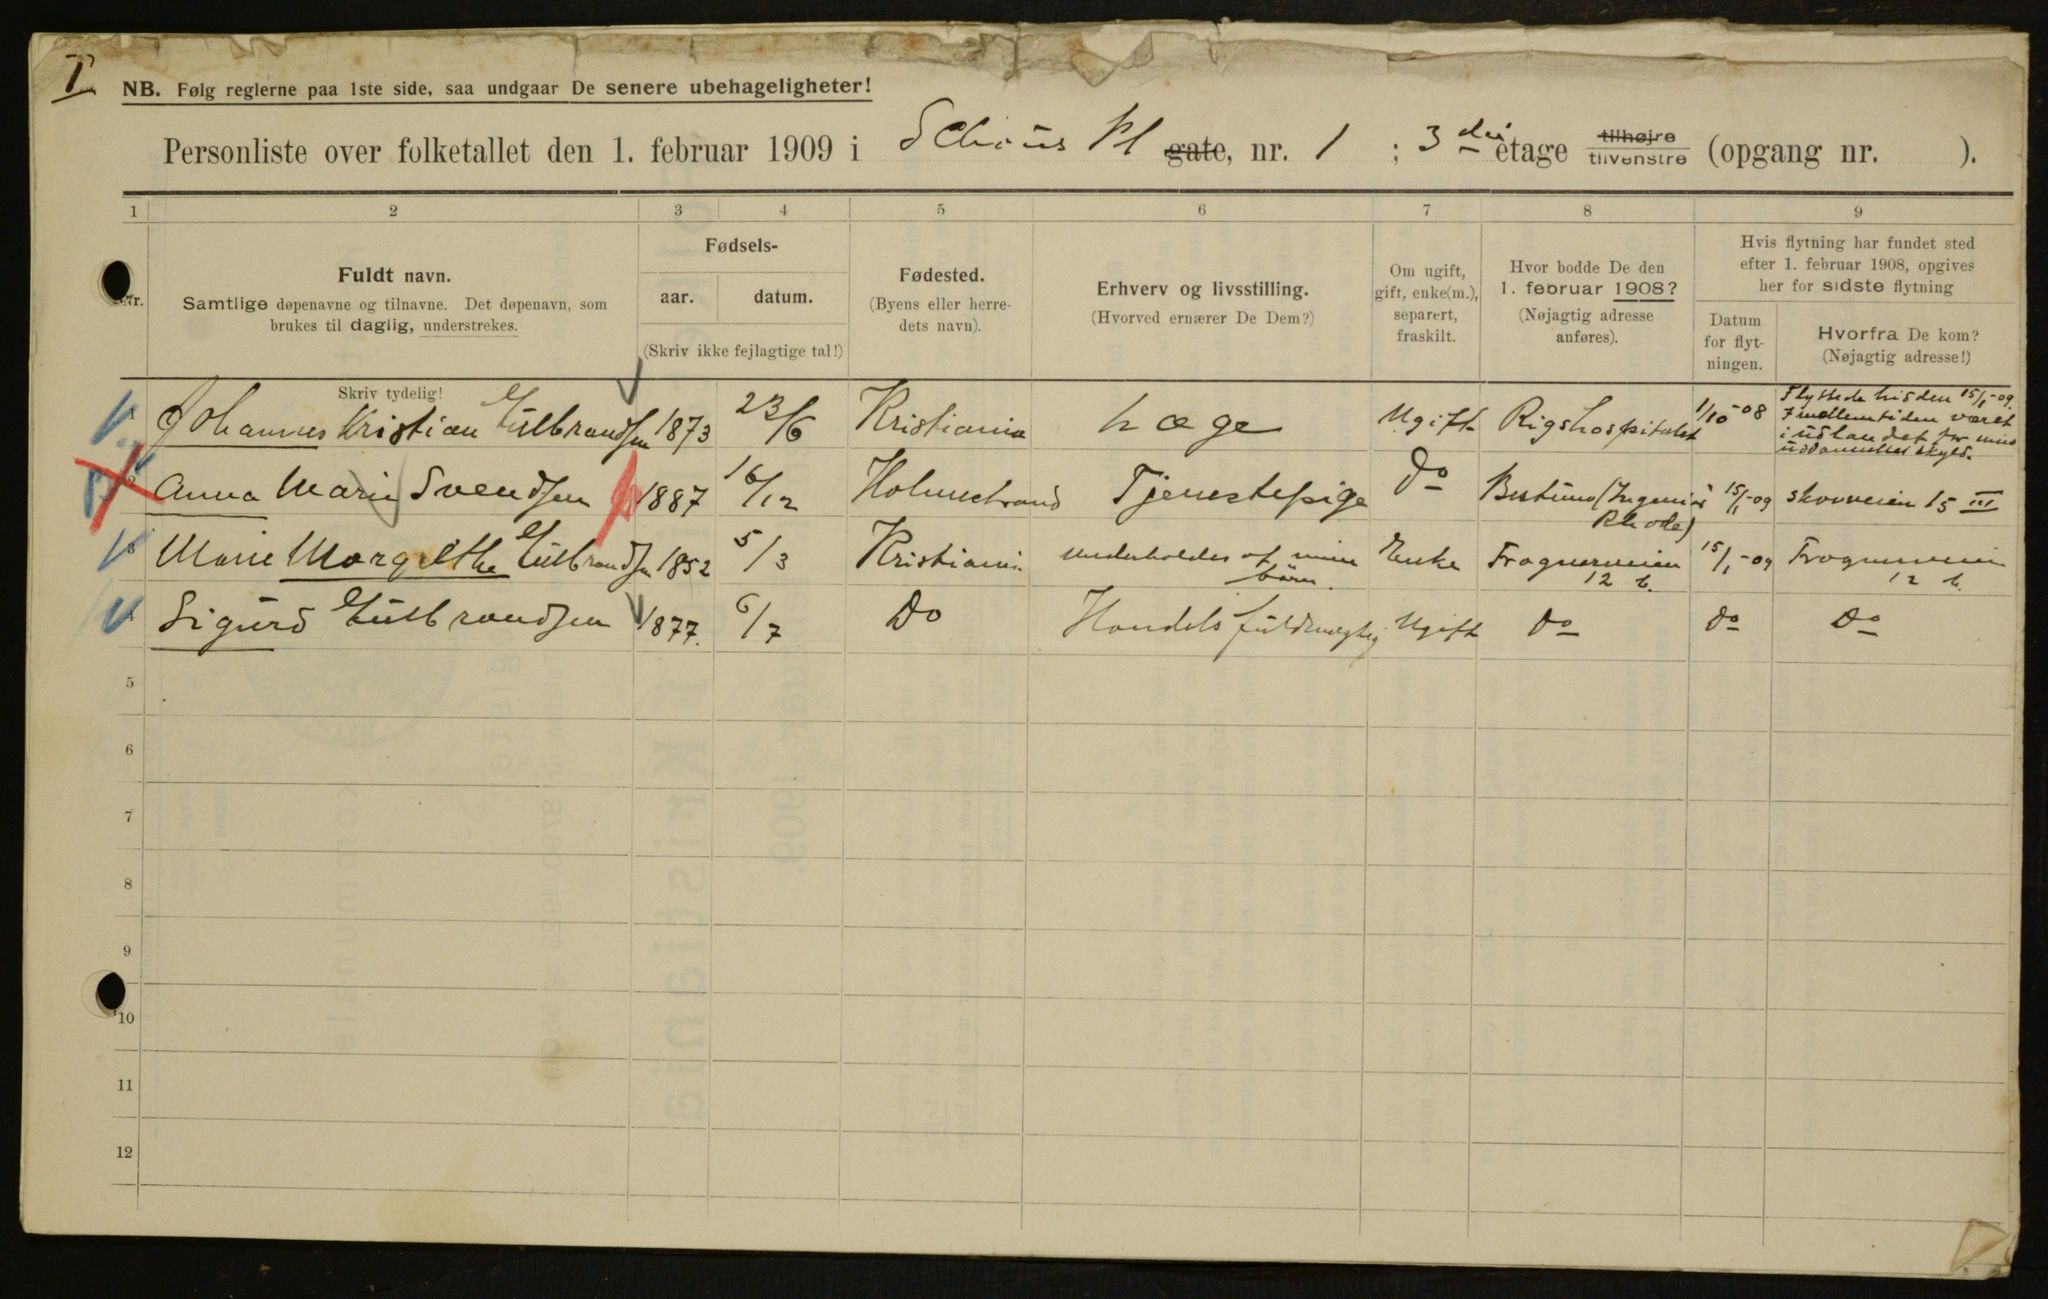 I
NB. Følg reglerne paa 1ste side, saa undgaar De senere ubehageligheter!
Personliste over folketallet den 1. februar 1909 i Schous Pl gate, nr. 1 ; 3die etage tilhøjre tilvenstre (opgang nr. ).
1 2 3 4 5 6 7 8 9
Nr.
Fuldt navn.
Samtlige døpenavne og tilnavne. Det døpenavn, som
brukes til daglig, understrekes.
Skriv tydelig!
Fødsels-
aar. datum.
(Skriv ikke fejlagtige tal!)
Fødested.
(Byens eller herre-
dets navn).
Erhverv og livsstilling.
(Hvorved ernærer De Dem?)
Om ugift,
gift, enke(m.),
separert,
fraskilt.
Hvor bodde De den
1. februar 1908?
(Nøjagtig adresse
anføres).
Hvis flytning har fundet sted
efter 1. februar 1908, opgives
her for sidste flytning
Datum
for flyt-
ningen.
Hvorfra De kom?
(Nøjagtig adresse!)
1 Johannes Kristian Gulbrandsen 1873 23/6 Kristiania Læge Ugift Rigshospitalet 1/10-08 Flyttede hid den 15/1-09.
i udlandet for min
uddannelses skyld.
2 Anna Marie Svendsen 1887 16/12 Holmestrand Tjenestepige Do Bestum (Ingeniør Rhode) 15/1-09 Skovveien 15 III
3 Marie Margrethe Gulbrandsen 1852 5/3 Kristiania underholdes af mine børn. Enke Frognerveien 12 b. 15/1-09 Frognerveien 12 b.
4 Sigurd Gulbrandsen 1877. 6/7 Do Handelsfuldmægtig Ugift Do Do Do
5
6
7
8
9
10
11
12